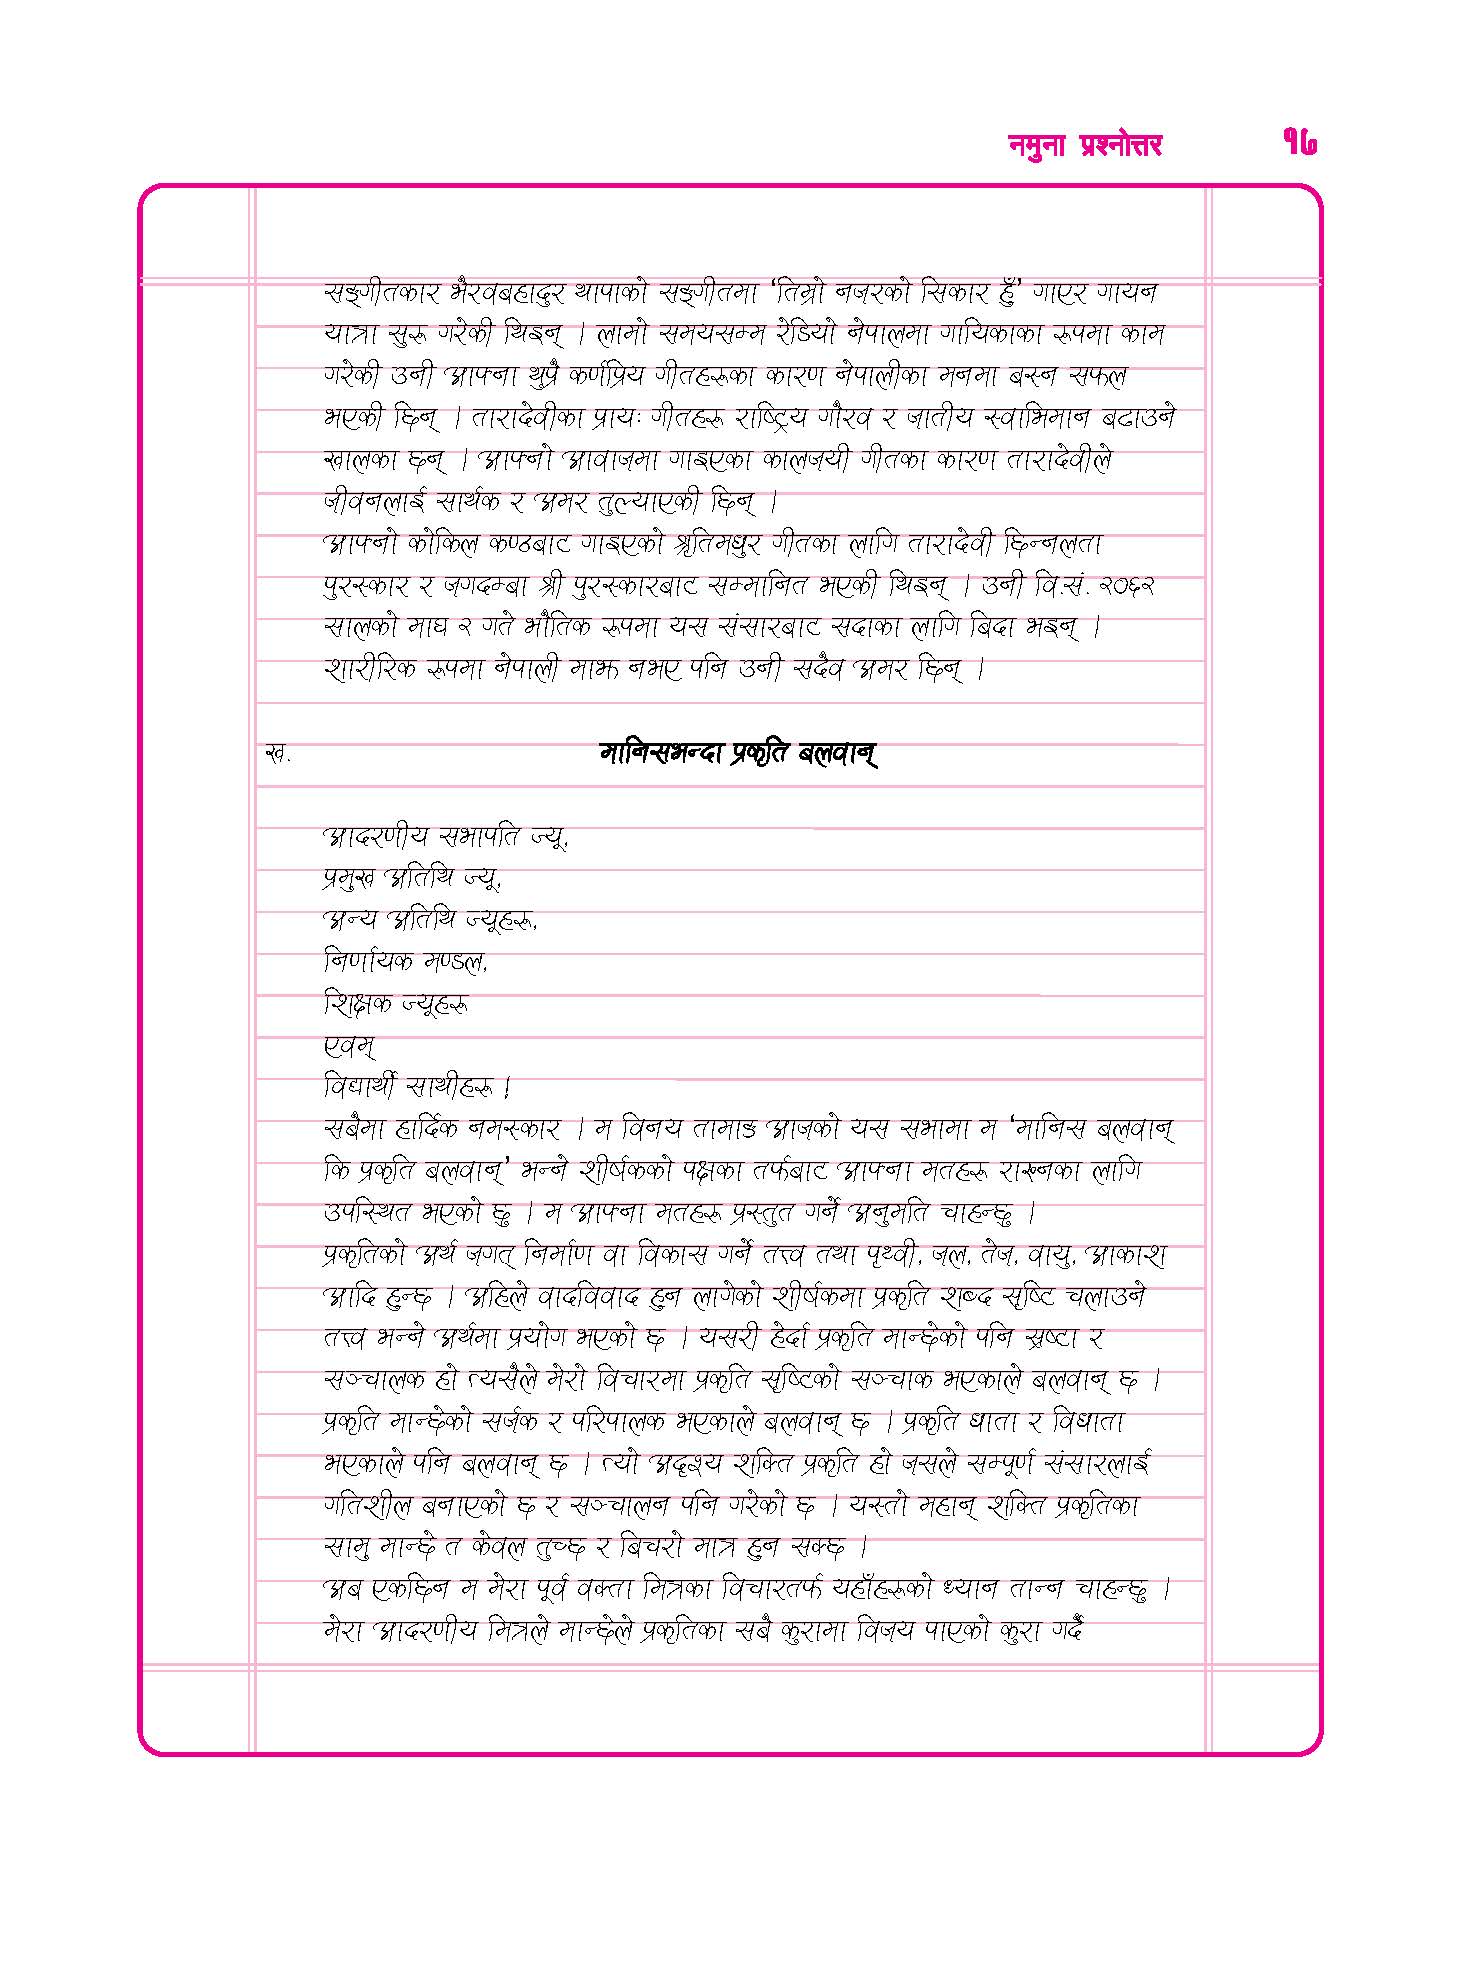 नमुना प्रश्नोत्तर १७
सङ्गीतकार भैरवबहादुर थापाको सङ्गीतमा ‘तिम्रो नजरको सिकार हुँ’ गाएर गायन
यात्रा सुरू गरेकी थिइन् । लामो समयसम्म रेडियो नेपालमा गायिकाका रूपमा काम
गरेकी उनी आफ्ना थुप्रै कर्णप्रिय गीतहरूका कारण नेपालीका मनमा बस्न सफल
भएकी छिन् । तारादेवीका प्रायः गीतहरू राष्ट्रिय गौरव र जातीय स्वाभिमान बढाउने
खालका छन् । आफ्नो आवाजमा गाइएका कालजयी गीतका कारण तारादेवीले
जीवनलाई सार्थक र अमर तुल्याएकी छिन् ।
आफ्नो कोकिल कण्ठबाट गाइएको श्रृतिमधुर गीतका लागि तारादेवी छिन्नलता
पुरस्कार र जगदम्बा श्री पुरस्कारबाट सम्मानित भएकी थिइन् । उनी वि.सं. २०६२
सालको माघ २ गते भौतिक रूपमा यस संसारबाट सदाका लागि बिदा भइन् ।
शारीरिक रूपमा नेपाली माझ नभए पनि उनी सदैव अमर छिन् ।
ख. मानिसभन्दा प्रकृति बलवान्
आदरणीय सभापति ज्यू,
प्रमुख अतिथि ज्यू,
अन्य अतिथि ज्यूहरू,
निर्णायक मण्डल,
शिक्षक ज्यूहरू
एवम्
विद्यार्थी साथीहरू !
सबैमा हार्दिक नमस्कार । म विनय तामाङ आजको यस सभामा म ‘मानिस बलवान्
कि प्रकृति बलवान्’ भन्ने शीर्षकको पक्षका तर्फबाट आफ्ना मतहरू राख्नका लागि
उपस्थित भएको छु । म आफ्ना मतहरू प्रस्तुत गर्ने अनुमति चाहन्छु ।
प्रकृतिको अर्थ जगत् निर्माण वा विकास गर्ने तत्त्व तथा पृथ्वी, जल, तेज, वायु, आकाश
आदि हुन्छ । अहिले वादविवाद हुन लागेको शीर्षकमा प्रकृति शब्द सृष्टि चलाउने
तत्त्व भन्ने अर्थमा प्रयोग भएको छ । यसरी हेर्दा प्रकृति मान्छेको पनि स्रष्टा र
सञ्चालक हो त्यसैले मेरो विचारमा प्रकृति सृष्टिको सञ्चाक भएकाले बलवान् छ ।
प्रकृति मान्छेको सर्जक र परिपालक भएकाले बलवान् छ । प्रकृति धाता र विधाता
भएकाले पनि बलवान् छ । त्यो अदृश्य शक्ति प्रकृति हो जसले सम्पूर्ण संसारलाई
गतिशील बनाएको छ र सञ्चालन पनि गरेको छ । यस्तो महान् शक्ति प्रकृतिका
सामु मान्छे त केवल तुच्छ र बिचरो मात्र हुन सक्छ ।
अब एकछिन म मेरा पूर्व वक्ता मित्रका विचारतर्फ यहाँहरूको ध्यान तान्न चाहन्छु ।
मेरा आदरणीय मित्रले मान्छेले प्रकृतिका सबै कुरामा विजय पाएको कुरा गर्दै